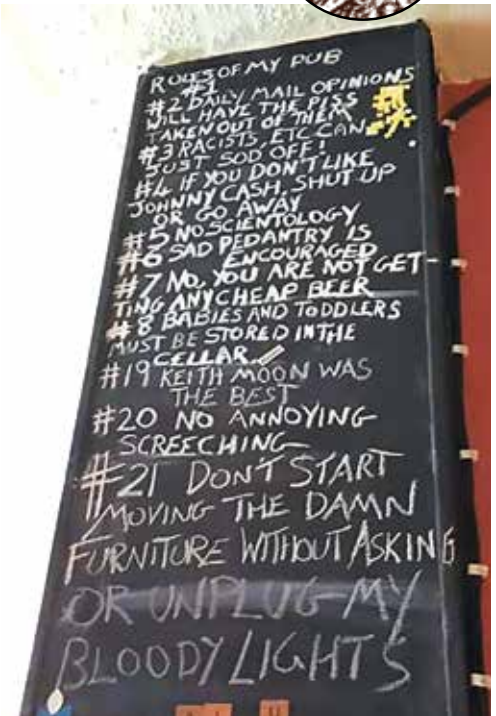 RULES OF MY PUB
#1
#2 DAILY MAIL OPINIONS
WILL HAVE THE PISS
TAKEN OUT OF THEM
#3 RACISTS, ETC CAN
JUST SOD OFF!
#4 IF YOU DON'T LIKE
JOHNNY CASH, SHUT UP
OR GO AWAY
#5 NO SCIENTOLOGY
#6 SAD PEDANTRY IS
ENCOURAGED
#7 NO, YOU ARE NOT GET-
TING ANY CHEAP BEER
#8 BABIES AND TODDLERS
MUST BE STORED IN THE
CELLAR
#19 KEITH MOON WAS
THE BEST
#20 NO ANNOYING
SCREECHING
#21 DON'T START
MOVING THE DAMN
FURNITURE WITHOUT ASKING
OR UNPLUG MY
BLOODY LIGHTS